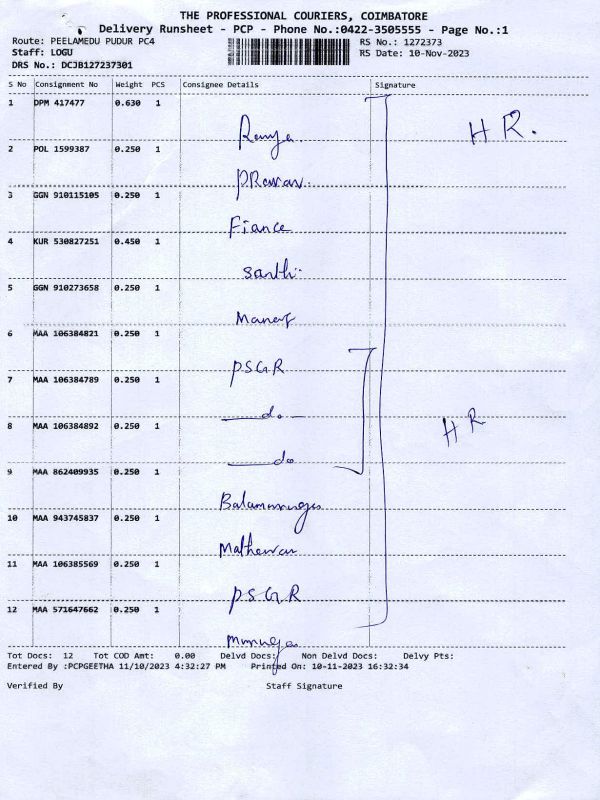 THE PROFESSIONAL COURIERS, COIMBATORE
Delivery Runsheet - PCP - Phone No.:0422-3505555 - Page No.:1
Route: PEELAMEDU PUDUR PC4
RS No.: 1272373
Staff: LOGU
RS Date: 10-Nov-2023
DRS No.: DCJB127237301
S No Consignment No Weight PCS Consignee Details Signature
1 DPM 417477 0.630 1
Ramya H R.
2 POL 1599387 0.250 1
3 GGN 910115105 0.250 1
Fiance
4 KUR 530827251 0.450 1
Santhi
5 GGN 910273658 0.250 1
6 MAA 106384821 0.250 1
PSGR
7 MAA 106384789 0.250 1
do
8 MAA 106384892 0.250 1
H R
do
9 MAA 862409935 0.250 1
10 MAA 943745837 0.250 1
11 MAA 106385569 0.250 1
PSGR
12 MAA 571647662 0.250 1
Tot Docs: 12 Tot COD Amt: 0.00 Delvd Docs: Non Delvd Docs: Delvy Pts:
Entered By :PCPGEETHA 11/10/2023 4:32:27 PM Printed On: 10-11-2023 16:32:34
Verified By Staff Signature